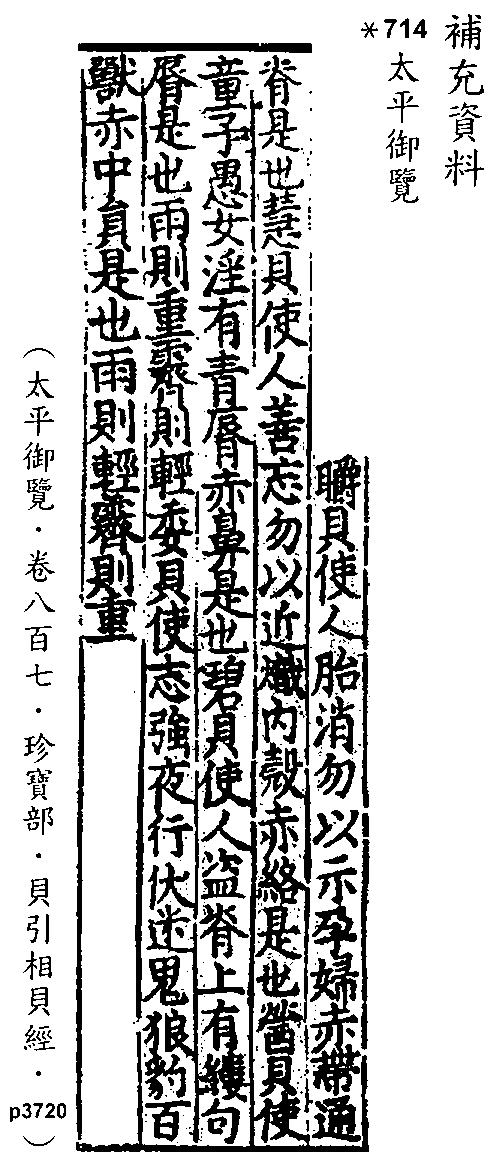 補充資料
*714 太平御覽
㬭貝使人胎消勿以示孕婦赤帶通
脊是也慧貝使人善忘勿以近熾內殼赤絡是也醟貝使
童子愚女淫有青脣赤鼻是也碧貝使人盜脊上有縷句
脣是也雨則重霽則輕委貝使志強夜行伏迷鬼狼豹百
獸赤中負是也雨則輕霽則重
(太平御覽．卷八百七．珍寶部．貝引相貝經．p3720)